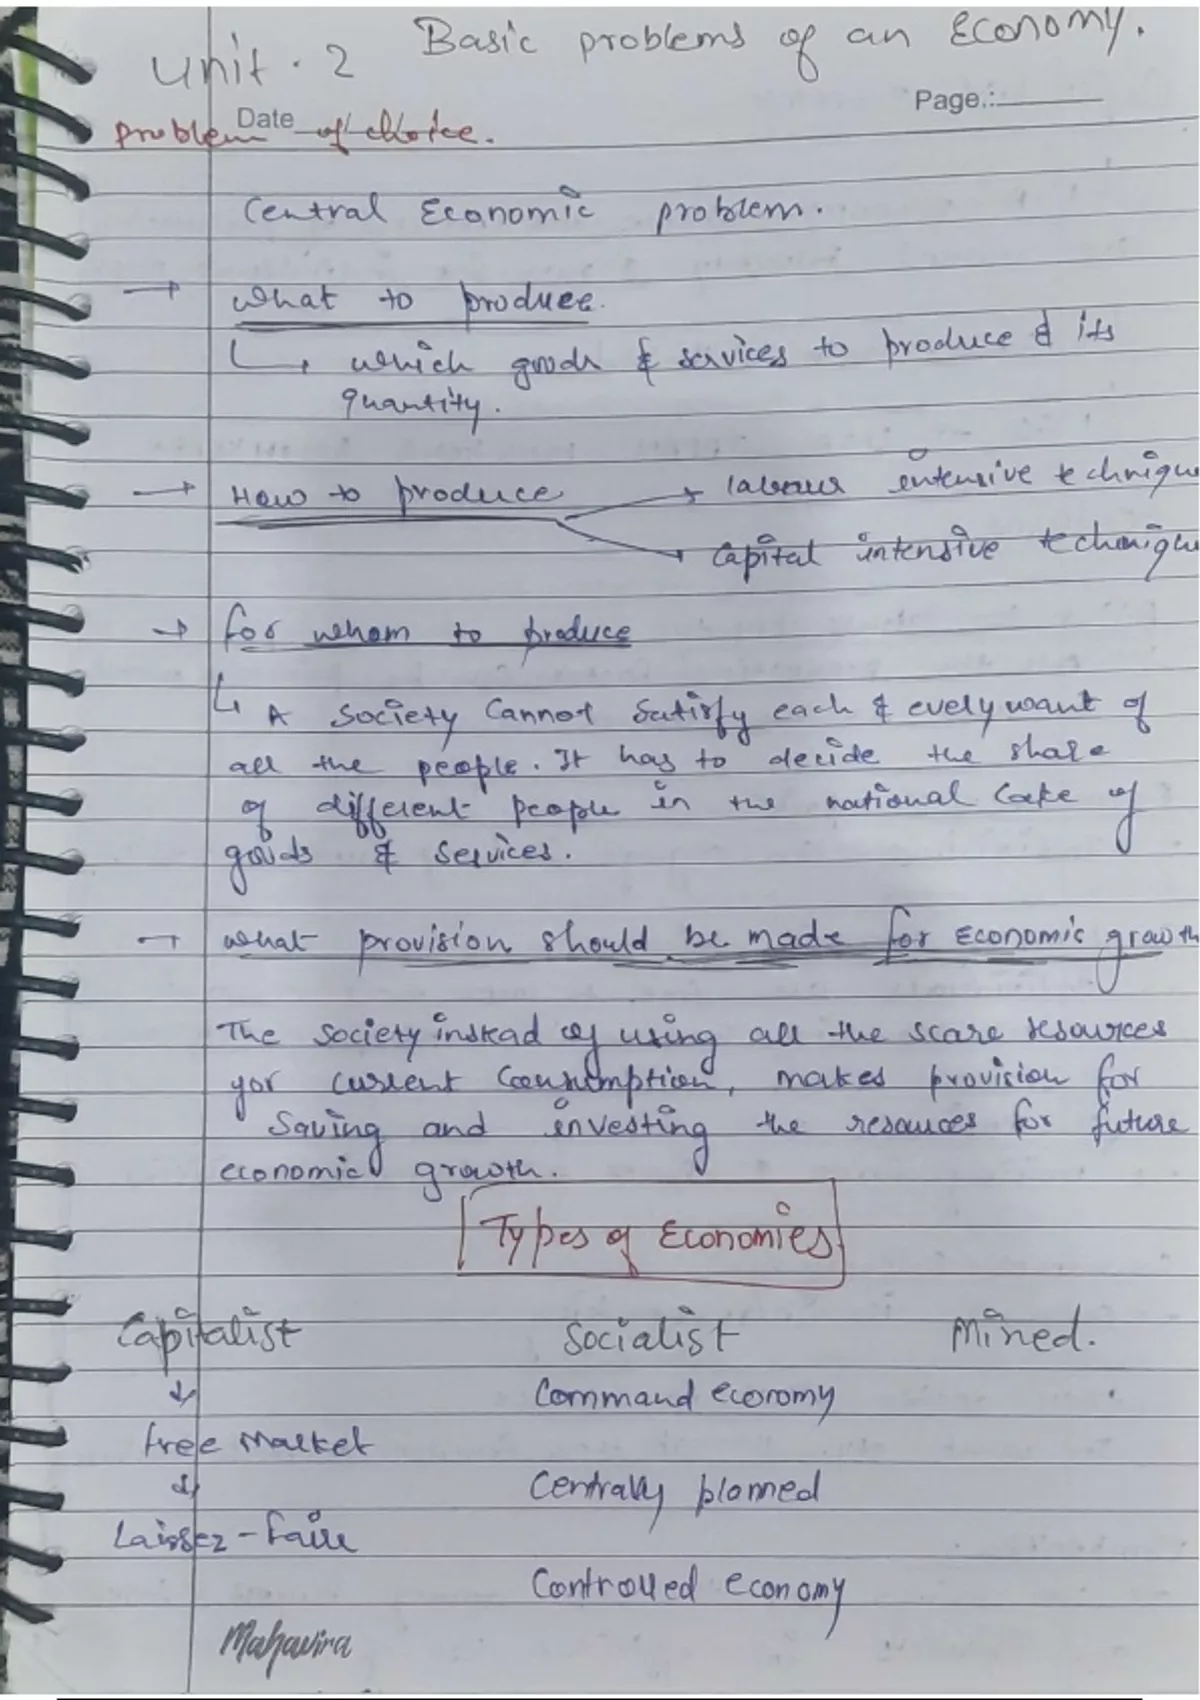 Unit. 2 Basic problems of an Economy.
Page.:
Date
Problem of choice.
Central Economic problem.
→ What to produce.
↳ which goods & services to produce & its
quantity.
→ How to produce → labour intensive technique
→ Capital intensive technique
→ for whom to produce
↳ A society cannot satisfy each & every want of
all the people. It has to decide the share
of different people in the national cake of
goods & services.
→ what provision should be made for economic growth
The society instead of using all the scare resources
for current consumption, makes provision for
saving and investing the resources for future
economic growth.
Types of Economies
Capitalist Socialist Mixed.
↓ Command economy
free Market
↓ Centrally planned
Laissez-faire
Controlled economy
Mahavira